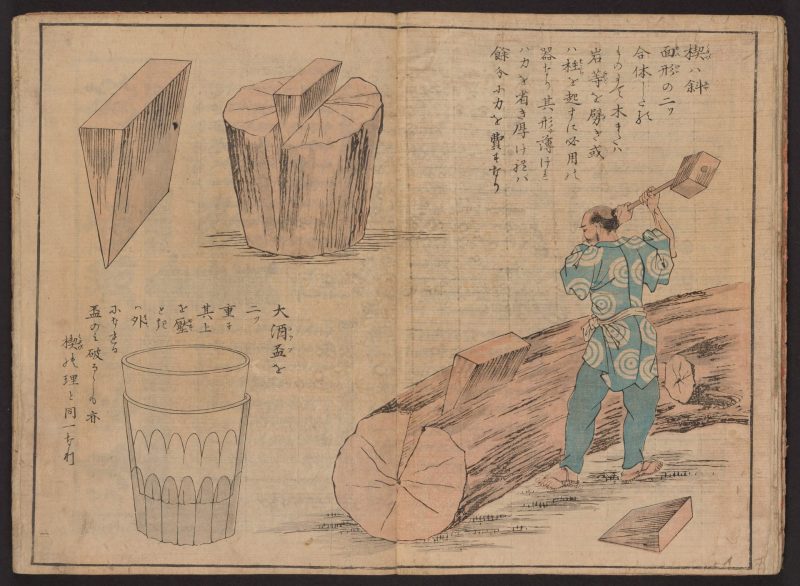 楔ハ斜
面形の二ツ
合体したる
ものにて木または
岩等を劈き或
ハ種を起すに必用の
器なり其形薄ければ
ハ力を省き厚け程ハ
餘分に力を費すなり
大酒盃を
二ツ
重ね
其上
を壓
とき
ハ外
になる
盃のミ破るゝも亦
楔の理と同一なり